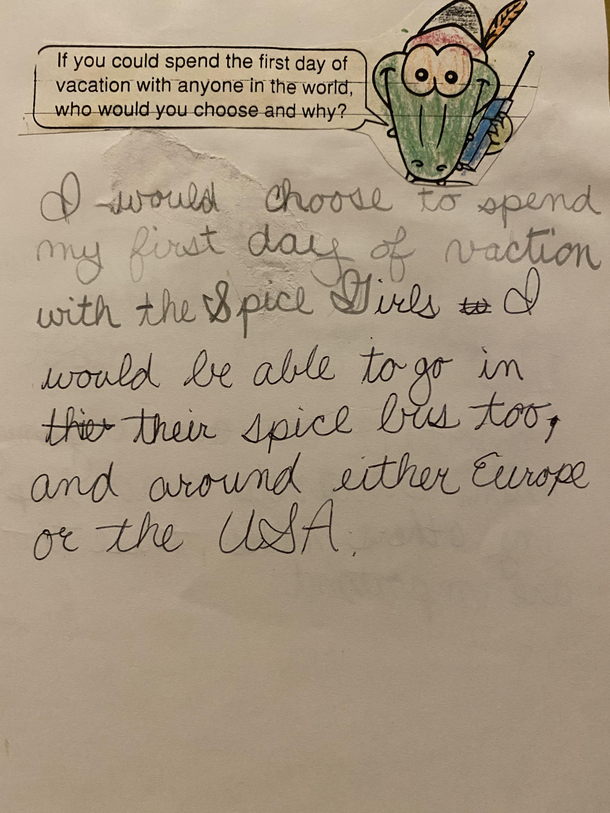 If you could spend the first day of
vacation with anyone in the world,
who would you choose and why?
I would choose to spend
my first day of vaction
with the Spice Girls to I
would be able to go in
thier their spice bus too,
and around either Europe
or the USA.